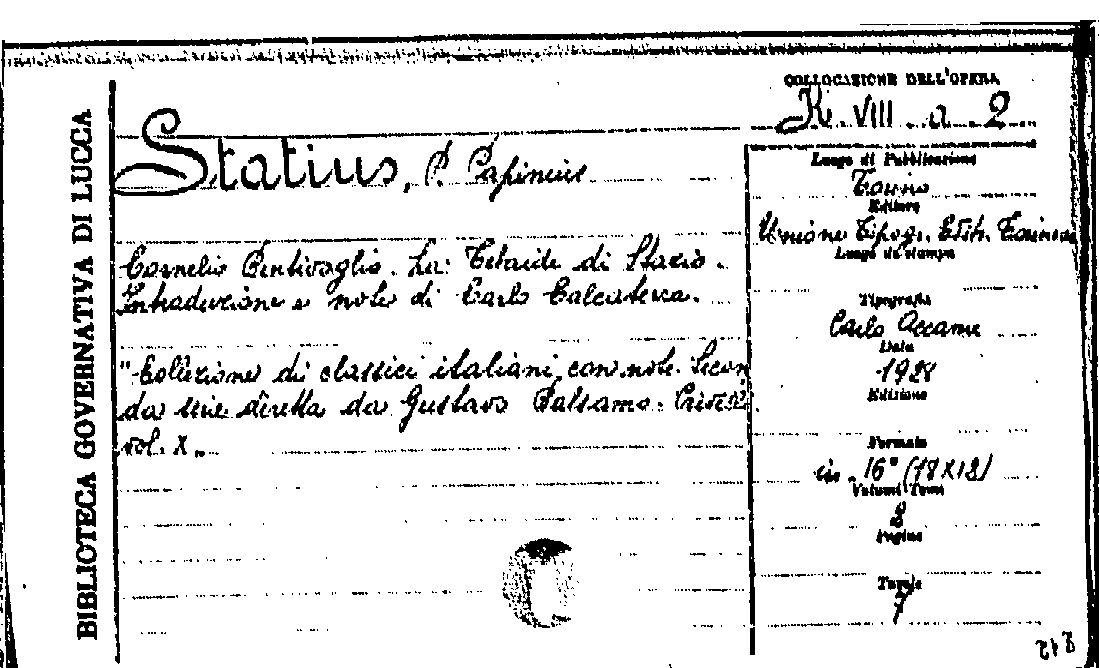 BIBLIOTECA GOVERNATIVA DI LUCCA
COLLOCAZIONE DELL'OPERA
VIII. a. 2
Statius, P. Papinius
Cornelio Bentivoglio. La Tebaide di Stazio.
Introduzione e note di Carlo Calcaterra.
"Collezione di classici italiani con note. Secon
da serie diretta da Gustavo Balsamo-Crivelli.
vol. X.
Luogo di Pubblicazione
Torino
Editore
Unione Tipogr. Edit. Torinese
Luogo di stampa
Tipografia
Carlo Accame
Data
1928
Edizione
Formato
in 16° (18X12)
Volumi Tomi
Pagine
Tavole
7